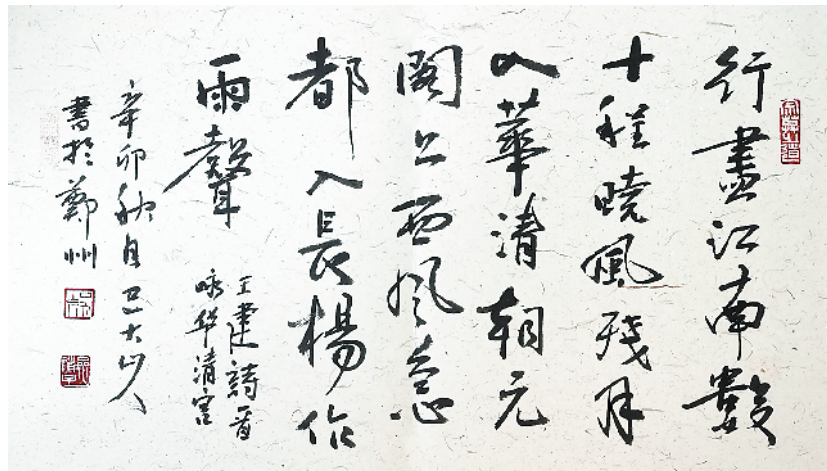 行盡江南數
十程曉風殘月
入華清朝元
閣上西風急
都入長楊作
雨聲
王建詩首
咏华清宮
辛卯秋月大山人
書於鄭州